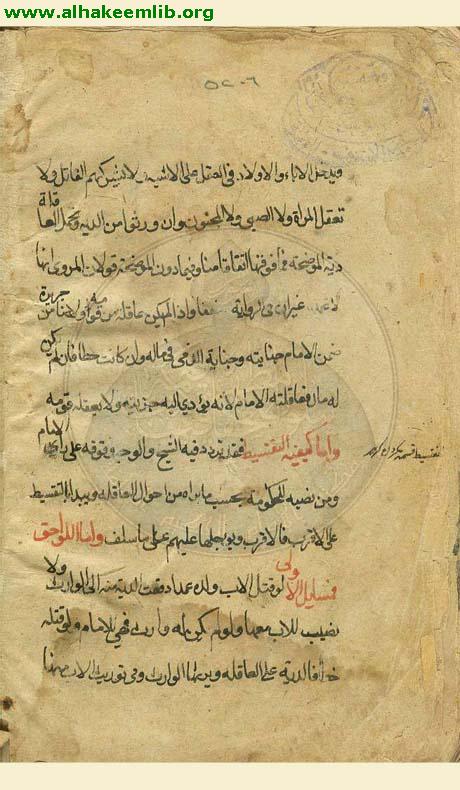 www.alhakeemlib.org
٥٢٠٦
ويدخل الاباء والاولاد في العقل على الاشبه ولا يشركهم القاتل ولا
تعقل المراة ولا الصبي ولا المجنون وان ورثوا من الدية وتحمل العاقلة
دية الموضحة فما فوقها اتفاقا منا وفيما دون الموضحة قولان المروي انها
لا غير ان في الرواية ضعفا واذا لم يكن عاقلة من قومه ولا ضامن جريرة
ضمن الامام جنايته وجناية الذمي في ماله وان كانت خطا فان لم يكن
له مال فعاقلته الامام لانه يؤدي اليه جزيته ولا يعقله قومه
واما كيفية التقسيط فقد تردد فيه الشيخ والوجه وقوفه على راي الامام
ومن نصبه للحكومة بحسب ما يراه من احوال العاقلة ويبدا بالتقسيط
على الاقرب فالاقرب ويؤجلها عليهم على ما سلف واما اللواحق
فمسايل الاولى لو قتل الاب ولده عمدا دفعت الدية منه الى الوارث ولا
نصيب للاب منها ولو لم يكن له وارث فهي للامام ولو قتله
خطأ فالدية على العاقلة ويرثها الوارث وفي توريث الاب منها